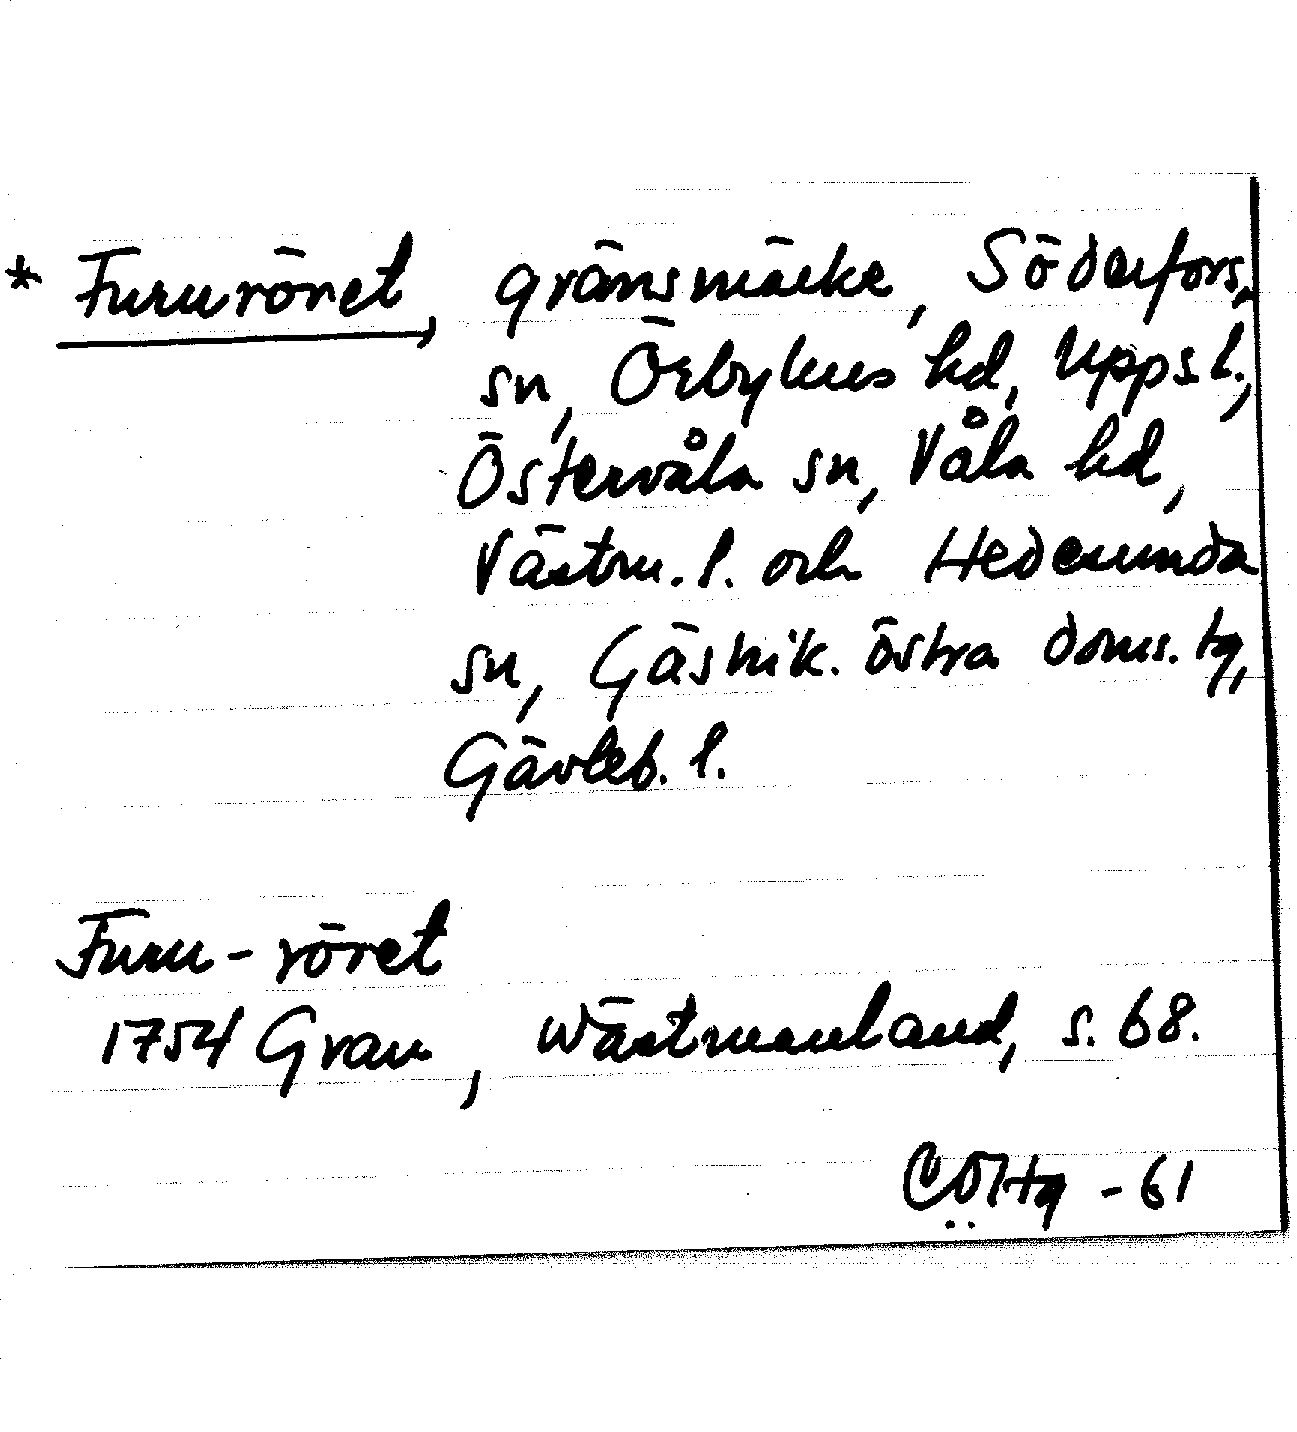 * Fururöret, gränsmärke, Söderfors,
sn, Örbyhus hd, Upps. l.,
Östervåla sn, Våla hd,
Västm. l. och Hedesunda
sn, Gästrik. östra doms. tg,
Gävleb. l.
Furu-röret
1754 Grau, Wästmanland, s. 68.
-61